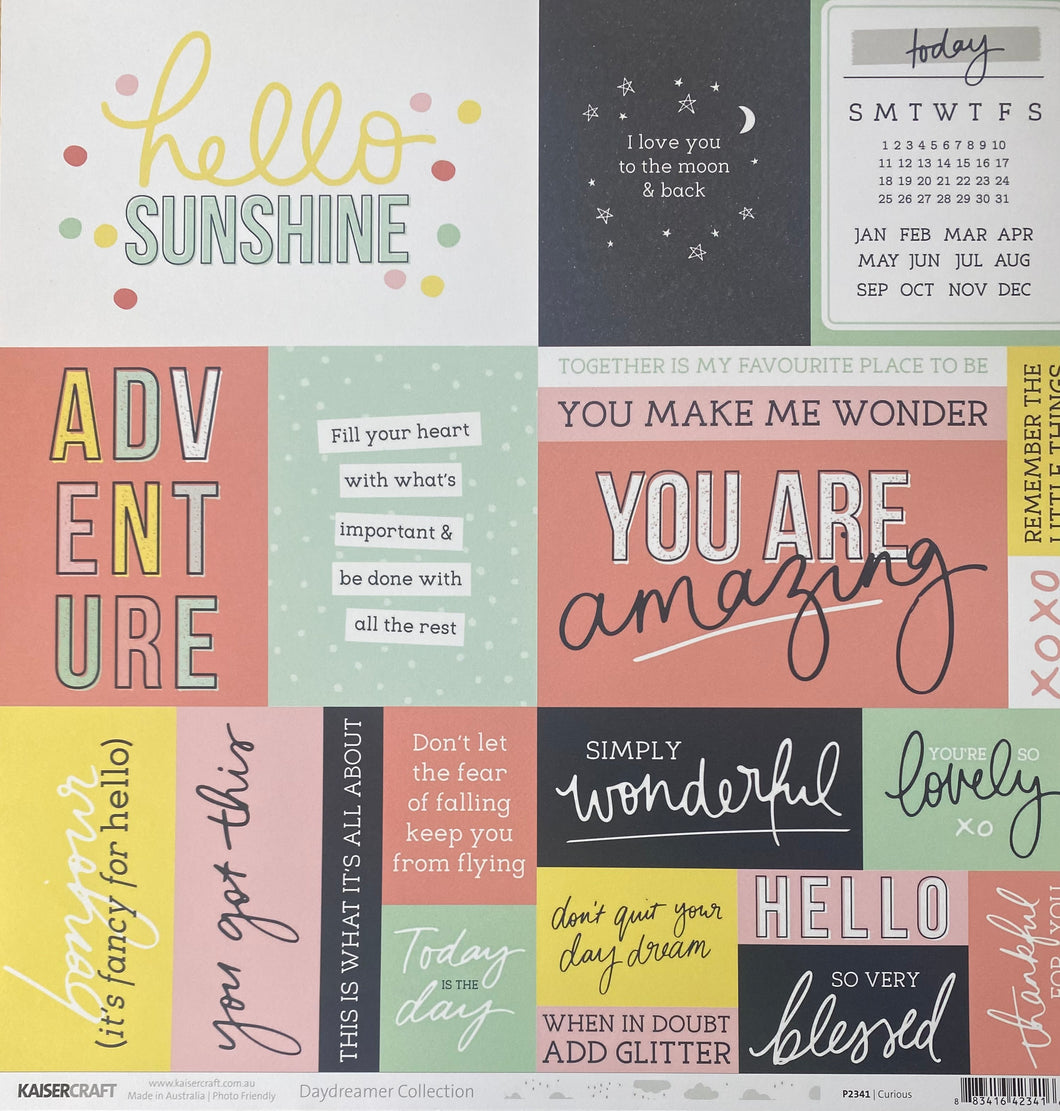 hello
SUNSHINE
I love you
to the moon
& back
today
S M T W T F S
1 2 3 4 5 6 7 8 9 10
11 12 13 14 15 16 17
18 19 20 21 22 23 24
25 26 27 28 29 30 31
JAN FEB MAR APR
MAY JUN JUL AUG
SEP OCT NOV DEC
ADV
ENT
URE
Fill your heart
with what's
important &
be done with
all the rest
TOGETHER IS MY FAVOURITE PLACE TO BE
YOU MAKE ME WONDER
YOU ARE
amazing
REMEMBER THE
LITTLE THINGS
XOXO
bonjour
(it's fancy for hello)
you got this
THIS IS WHAT IT'S ALL ABOUT
Don't let
the fear
of falling
keep you
from flying
Today
IS THE
day
SIMPLY
wonderful
YOU'RE SO
lovely
XO
don't quit your
day dream
WHEN IN DOUBT
ADD GLITTER
HELLO
SO VERY
blessed
thankful
FOR YOU
KAISERCRAFT
www.kaisercraft.com.au
Made in Australia | Photo Friendly
Daydreamer Collection
P2341 | Curious
8 83416 42341